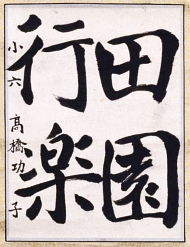 田園
行楽
小六 高橋功子